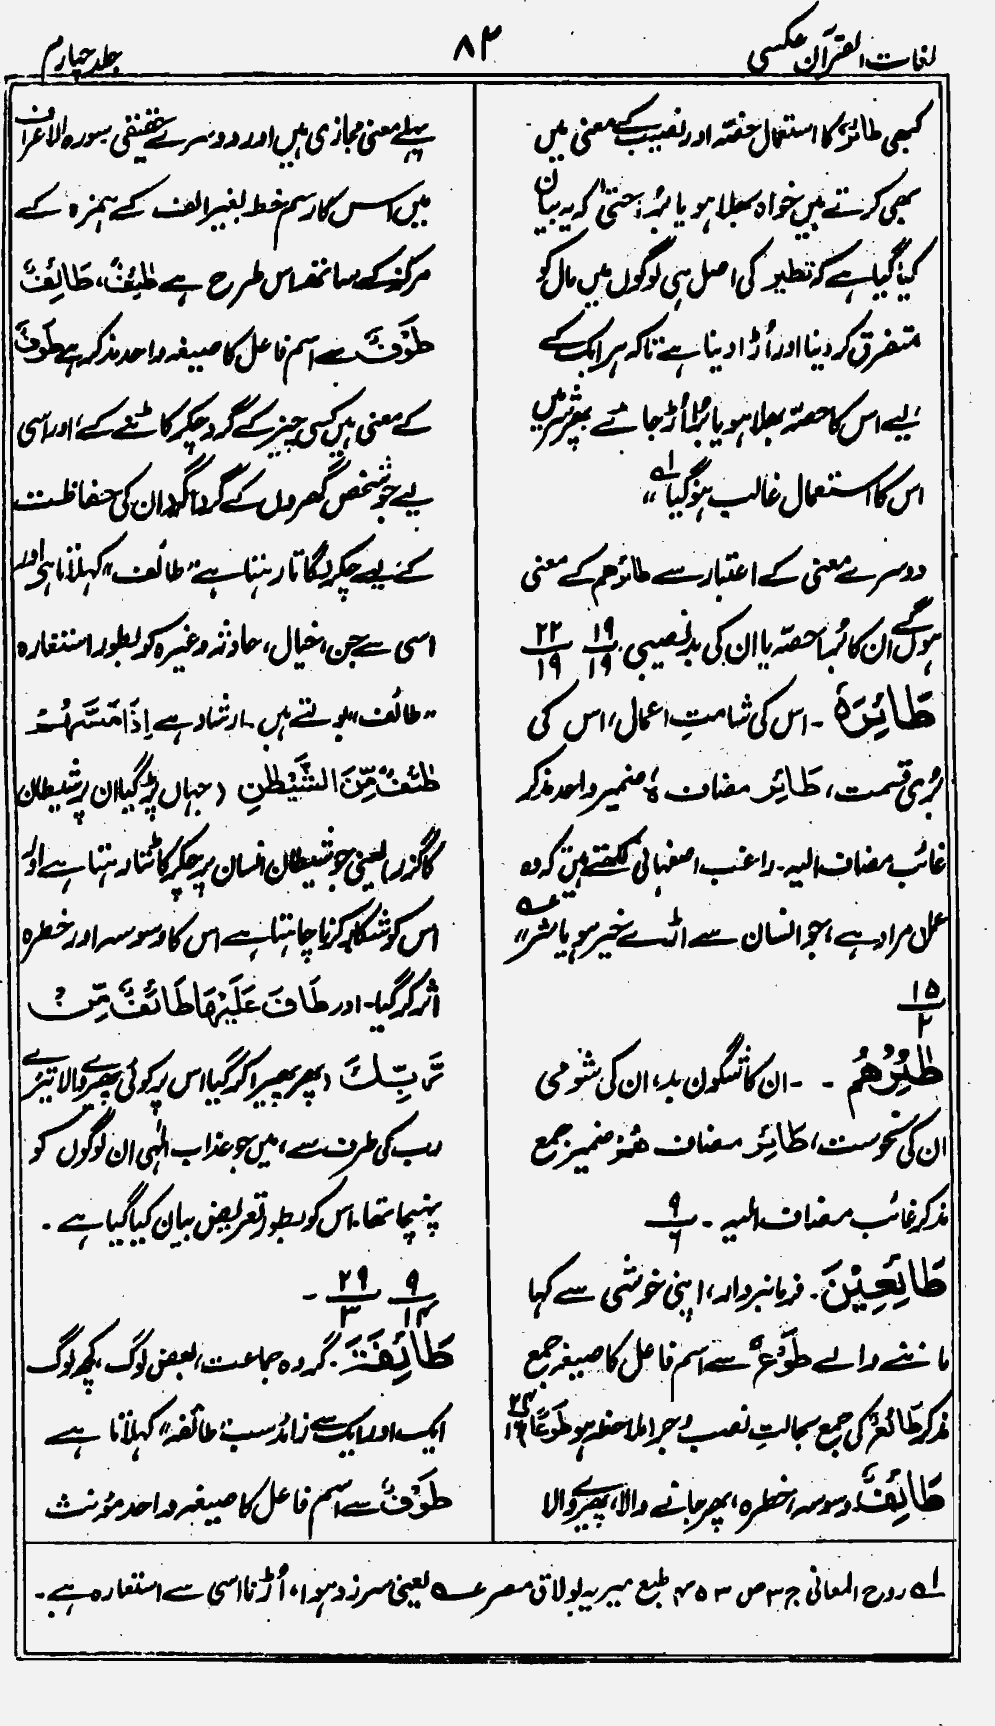 لغات القرآن عکسی
۸۳
جلد چہارم
کبھی طائرٌ کا استعمال حصّہ اور نصیب کے معنی میں
بھی کرتے ہیں خواہ بھلا ہو یا بُرا، حتیٰ کہ یہ بیان
کیا گیا ہے کہ تطیر کی اصل ہی لوگوں میں مال کو
متفرق کر دینا اور اُڑا دینا ہے تاکہ ہر ایک کے
لیے اس کا حصّہ بھلا ہو یا بُرا اُڑ جائے پھر شر میں
اس کا استعمال غالب ہو گیا ؂۱ ،،
دوسرے معنی کے اعتبار سے طائرھم کے معنی
ہوں گے ان کا بُرا حصّہ یا ان کی بدنصیبی ۱۹/۱۹ ۲۲/۱۹
طَائِرَہٗ ۔ اس کی شامتِ اعمال، اس کی
بُری قسمت، طَائِر مضاف، ہٗ ضمیر واحد مذکر
غائب مضاف الیہ۔ راغب اصفہانی لکھتے ہیں کہ وہ
عمل مراد ہے، جو انسان سے اڑے خیر ہو یا شر ،،
۱۵/۲
طٰٓئِرُھُم ۔ ۔ ان کا شگون بد، ان کی شومی
ان کی نحوست، طَائِر مضاف ھُمْ ضمیر جمع
مذکر غائب مضاف الیہ ۔ ۹/۶
طَائِعِیْنَ ۔ فرمانبردار، اپنی خوشی سے کہا
ماننے والے طَوْعٌ سے اسم فاعل کا صیغہ جمع
مذکر طَائِعٌ کی جمع بحالتِ نصب و جر املاحظہ ہو طَوْعًا ۲۴/۱۶
طَائِفٌ۔ وسوسہ، خطرہ، پھر جانے والا، پھیرے والا
پہلے معنی مجازی ہیں اور دوسرے حقیقی سورہ الاعراف
میں اس کا رسم خط بغیر الف کے ہمزہ کے
مرکز کے ساتھ اس طرح ہے طٰٓئِفٌ، طَائِفٌ
طَوْفٌ سے اسم فاعل کا صیغہ واحد مذکر ہے طَوْفٌ
کے معنی ہیں کسی چیز کے گرد چکر کاٹنے کے، اور اسی
لیے جو شخص گھروں کے گرداگرد ان کی حفاظت
کے لیے چکر لگاتا رہتا ہے "طائف" کہلاتا ہے اور
اسی سے جن، خیال، حادثہ وغیرہ کو بطور استعارہ
"طائف" بولتے ہیں ۔ ارشاد ہے اِذَا مَسَّھُمْ
طٰٓئِفٌ مِّنَ الشَّیْطٰنِ (جہاں پڑ گیا ان پر شیطان
کا گزر) یعنی جو شیطان انسان پر چکر کاٹتا رہتا ہے اور
اس کو شکار کرنا چاہتا ہے اس کا وسوسہ اور خطرہ
اثر کر گیا۔ اور طَافَ عَلَیْھَا طَائِفٌ مِّن
رَّبِّكَ (پھر پھیرا کر گیا اس پر کوئی پھیرے والا تیرے
رب کی طرف سے) میں جو عذاب الٰہی ان لوگوں کو
پہنچا تھا۔ اس کو بطور تعریض بیان کیا گیا ہے ۔
۹/۱۴ ۲۹/۳ ۔
طَائِفَۃَ ۔ گروہ جماعت، بعض لوگ، کچھ لوگ
ایک اور ایک سے زائد سب "طائفہ" کہلاتا ہے
طَوْفٌ سے اسم فاعل کا صیغہ واحد مؤنث
؂۱ روح المعانی ج ۳ ص ۴۵۳ طبع میریہ بولاق مصر ؂ یعنی سرزد ہوا، اُڑنا اسی سے استعارہ ہے ۔